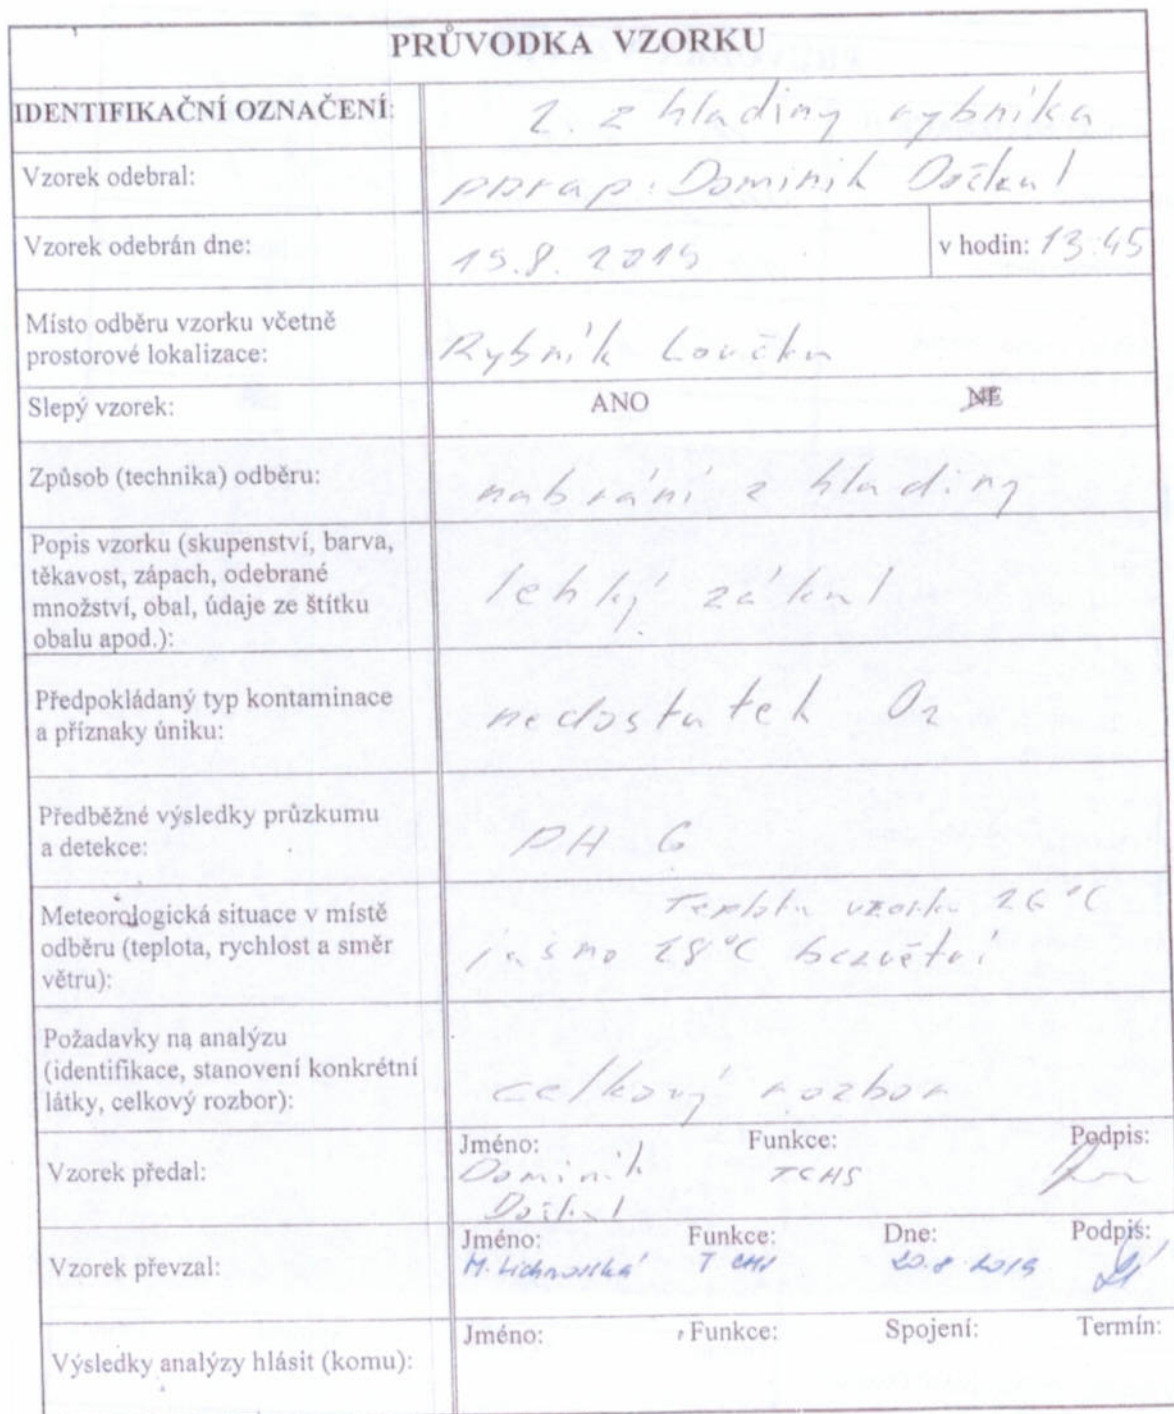 PRŮVODKA VZORKU
IDENTIFIKAČNÍ OZNAČENÍ: 2. z hladiny rybníka
Vzorek odebral: pprap. Dominik
Vzorek odebrán dne: 19.8.2019 v hodin: 13:45
Místo odběru vzorku včetně
prostorové lokalizace: Rybník Loučka
Slepý vzorek: ANO NE
Způsob (technika) odběru: nabrání z hladiny
Popis vzorku (skupenství, barva,
těkavost, zápach, odebrané
množství, obal, údaje ze štítku
obalu apod.): lehký zákal
Předpokládaný typ kontaminace
a příznaky úniku: nedostatek O2
Předběžné výsledky průzkumu
a detekce: PH 6
Meteorologická situace v místě
odběru (teplota, rychlost a směr
větru): Teplota vzorku 26 °C
jasno 28 °C bezvětří
Požadavky na analýzu
(identifikace, stanovení konkrétní
látky, celkový rozbor): celkový rozbor
Vzorek předal: Jméno: Funkce: Podpis:
Dominik TCHS
Vzorek převzal: Jméno: Funkce: Dne: Podpis:
M. Lichnovská T CHS 20.8.2019
Výsledky analýzy hlásit (komu): Jméno: Funkce: Spojení: Termín: